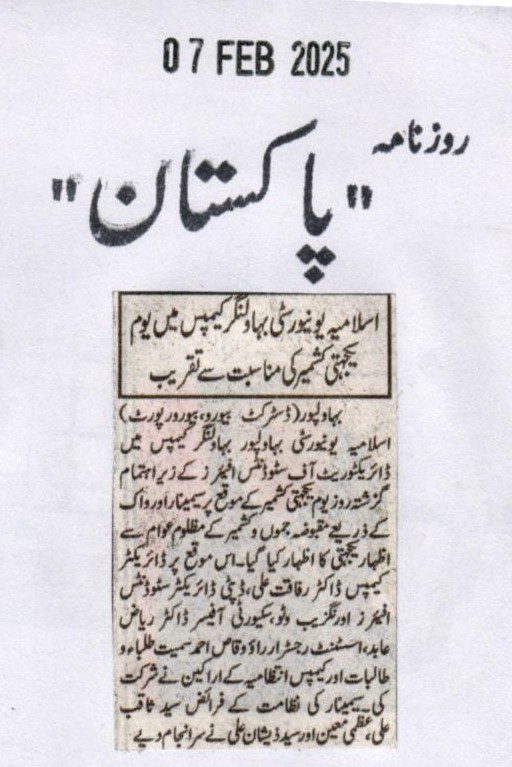 07 FEB 2025
روزنامہ
"پاکستان"
اسلامیہ یونیورسٹی بہاولنگر کیمپس میں یوم
یکجہتی کشمیر کی مناسبت سے تقریب
بہاولپور (ڈسٹرکٹ بیورو، بیورورپورٹ)
اسلامیہ یونیورسٹی بہاولپور بہاولنگر کیمپس میں
ڈائریکٹوریٹ آف سٹوڈنٹس افیئرز کے زیر اہتمام
گزشتہ روز یوم یکجہتی کشمیر کے موقع پر سیمینار اور واک
کے ذریعے مقبوضہ جموں و کشمیر کے مظلوم عوام سے
اظہار یکجہتی کا اظہار کیا گیا۔ اس موقع پر ڈائریکٹر
کیمپس ڈاکٹر رفاقت علی، ڈپٹی ڈائریکٹر سٹوڈنٹس
افیئرز اورنگزیب وٹو، سکیورٹی آفیسر ڈاکٹر ریاض
عابد، اسسٹنٹ رجسٹرار راؤ وقاص احمد سمیت طلباء و
طالبات اور کیمپس انتظامیہ کے اراکین نے شرکت
کی۔ سیمینار کی نظامت کے فرائض سید ثاقب
علی، عظمیٰ معین اور سید ذیشان علی نے سرانجام دیے